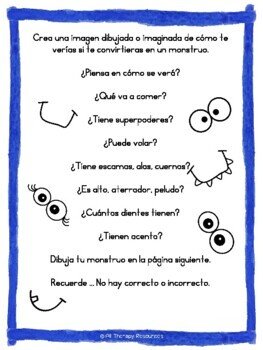 Crea una imagen dibujada o imaginada de cómo te
verías si te convirtieras en un monstruo.
¿Piensa en cómo se veró?
¿Qué va a comer?
¿Tiene superpoderes?
¿Puede volar?
¿Tiene escamas, alas, cuernos?
¿Es alto, aterrador, peludo?
¿Cuántos dientes tienen?
¿Tienen acento?
Dibuja tu monstruo en la página siguiente.
Recuerde ... No hay correcto o incorrecto.
© All Therapy Resources